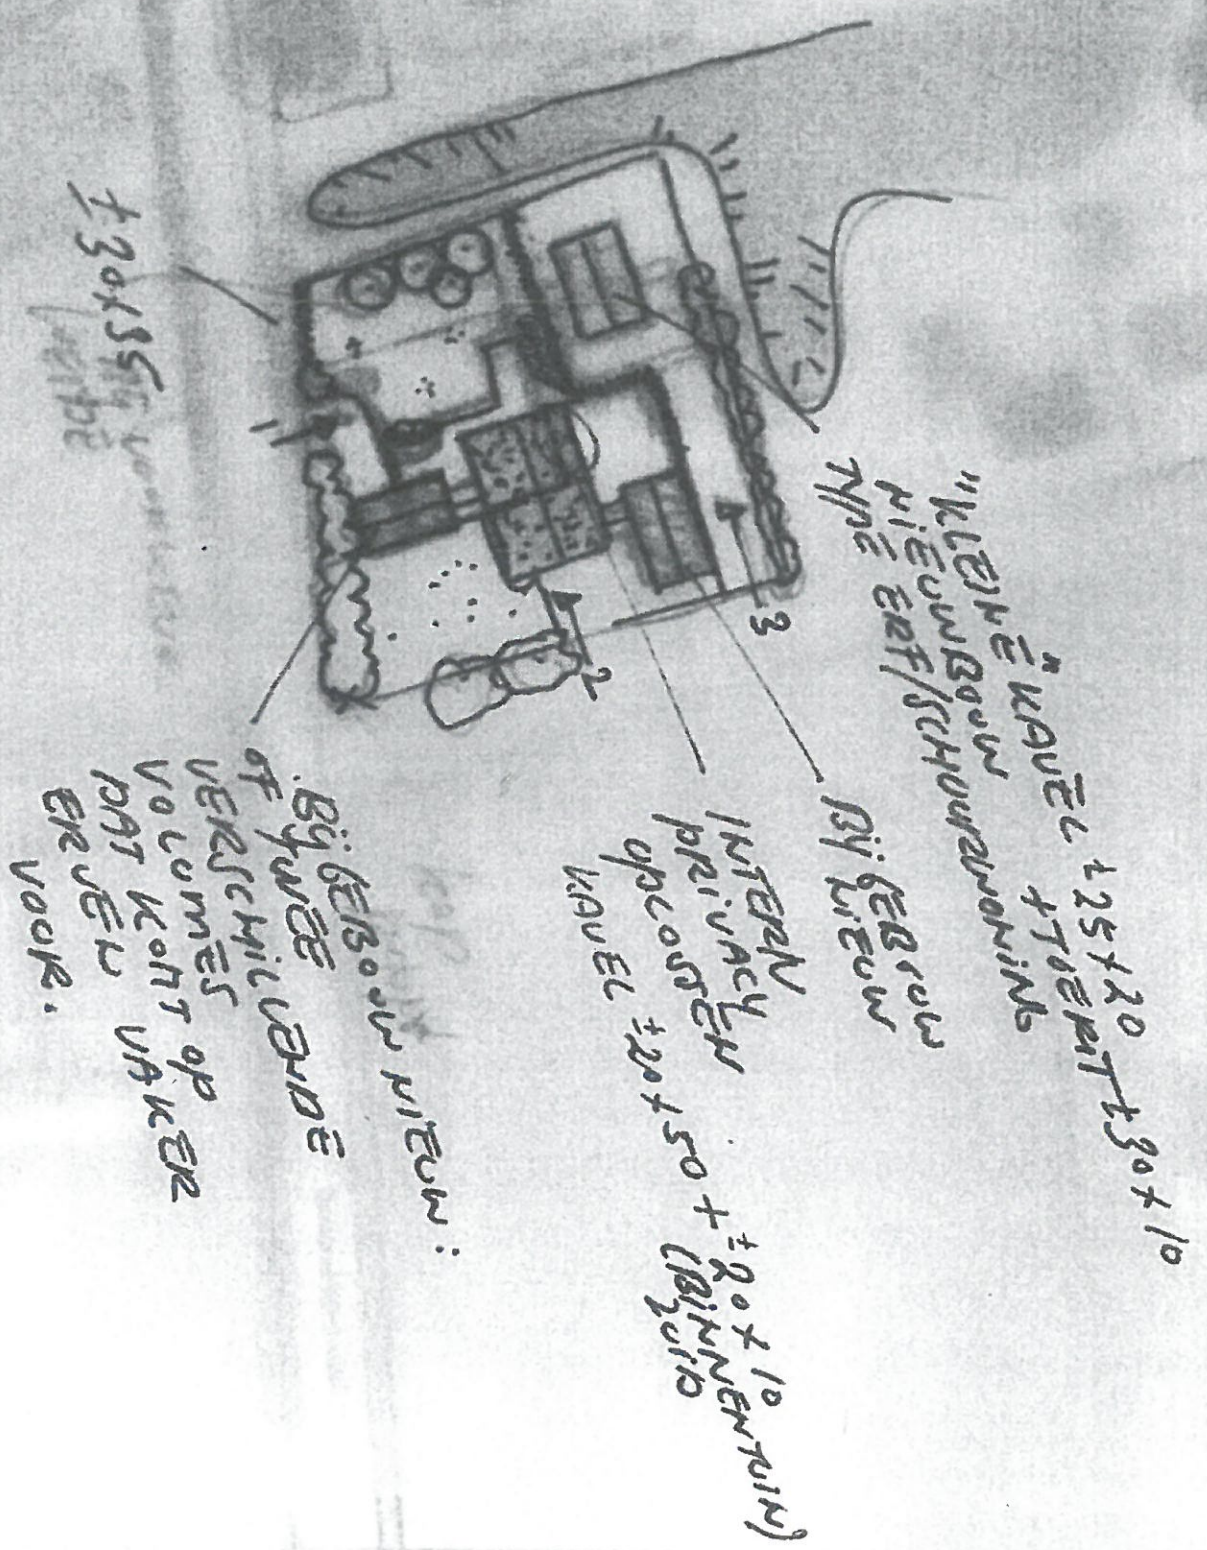 "KLEINE" KAVEL ± 25 x 20
+ TOERIT ± 30 x 10
NIEUWBOUW
TYPE ERF/SCHUURWONING
BIJGEBOUW
NIEUW
INTERN
PRIVACY
OPLOSSEN
KAVEL ± 20 x 50 + ± 20 x 10
(BINNENTUIN)
ZUID
BIJGEBOUW NIEUW:
OF TWEE
VERSCHILLENDE
VOLUMES
DAT KOMT OP
ERVEN VAKER
VOOR.
± 30 x 35
1
2
3